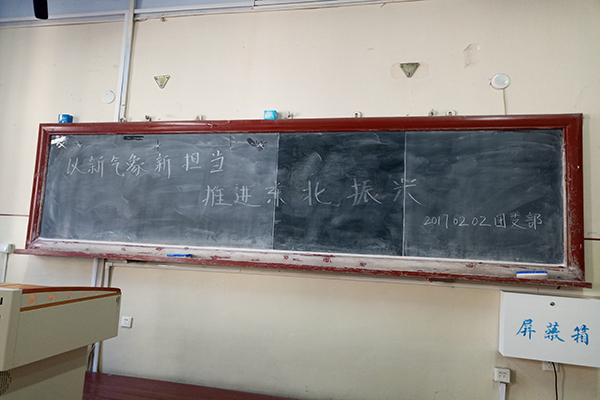 以新气象新担当
推进东北振兴
2017 02 02 团支部
屏蔽箱